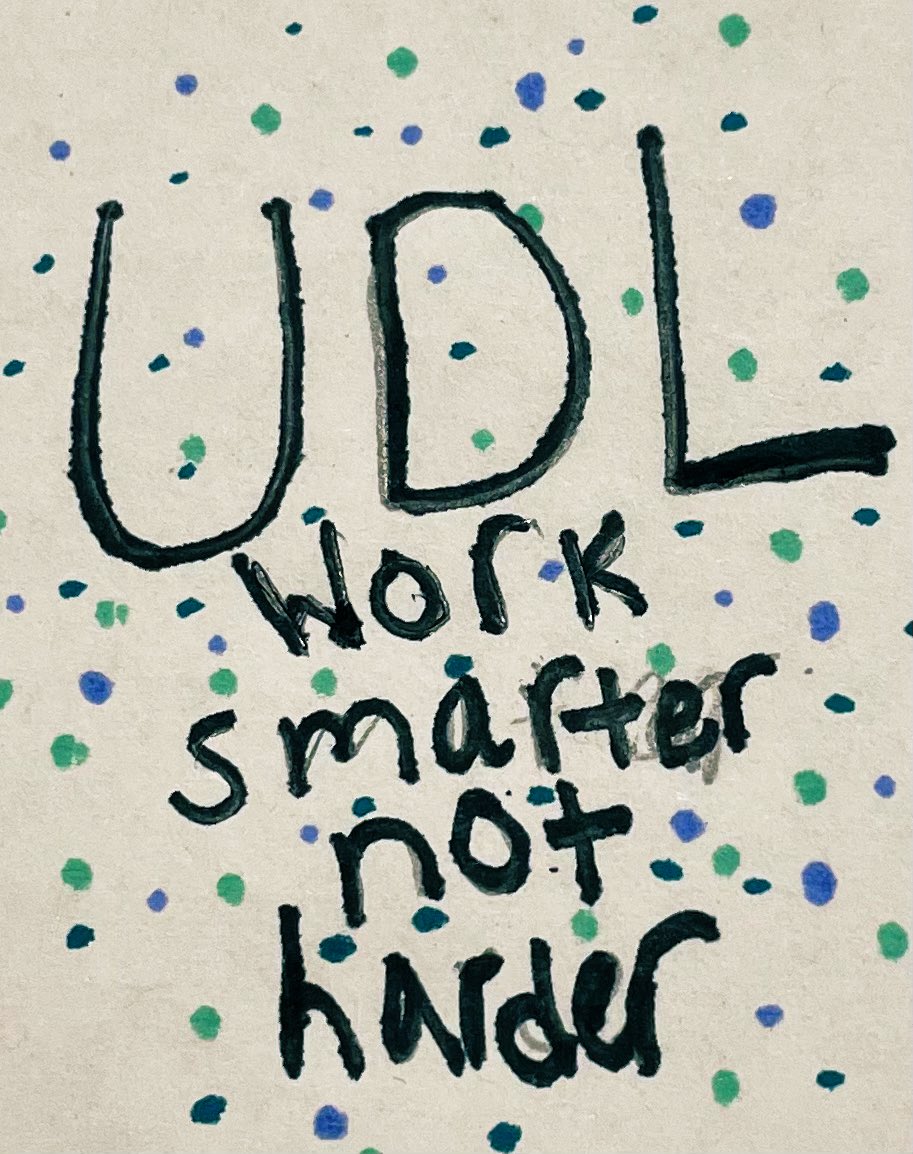 UDL
Work
smarter
not
harder